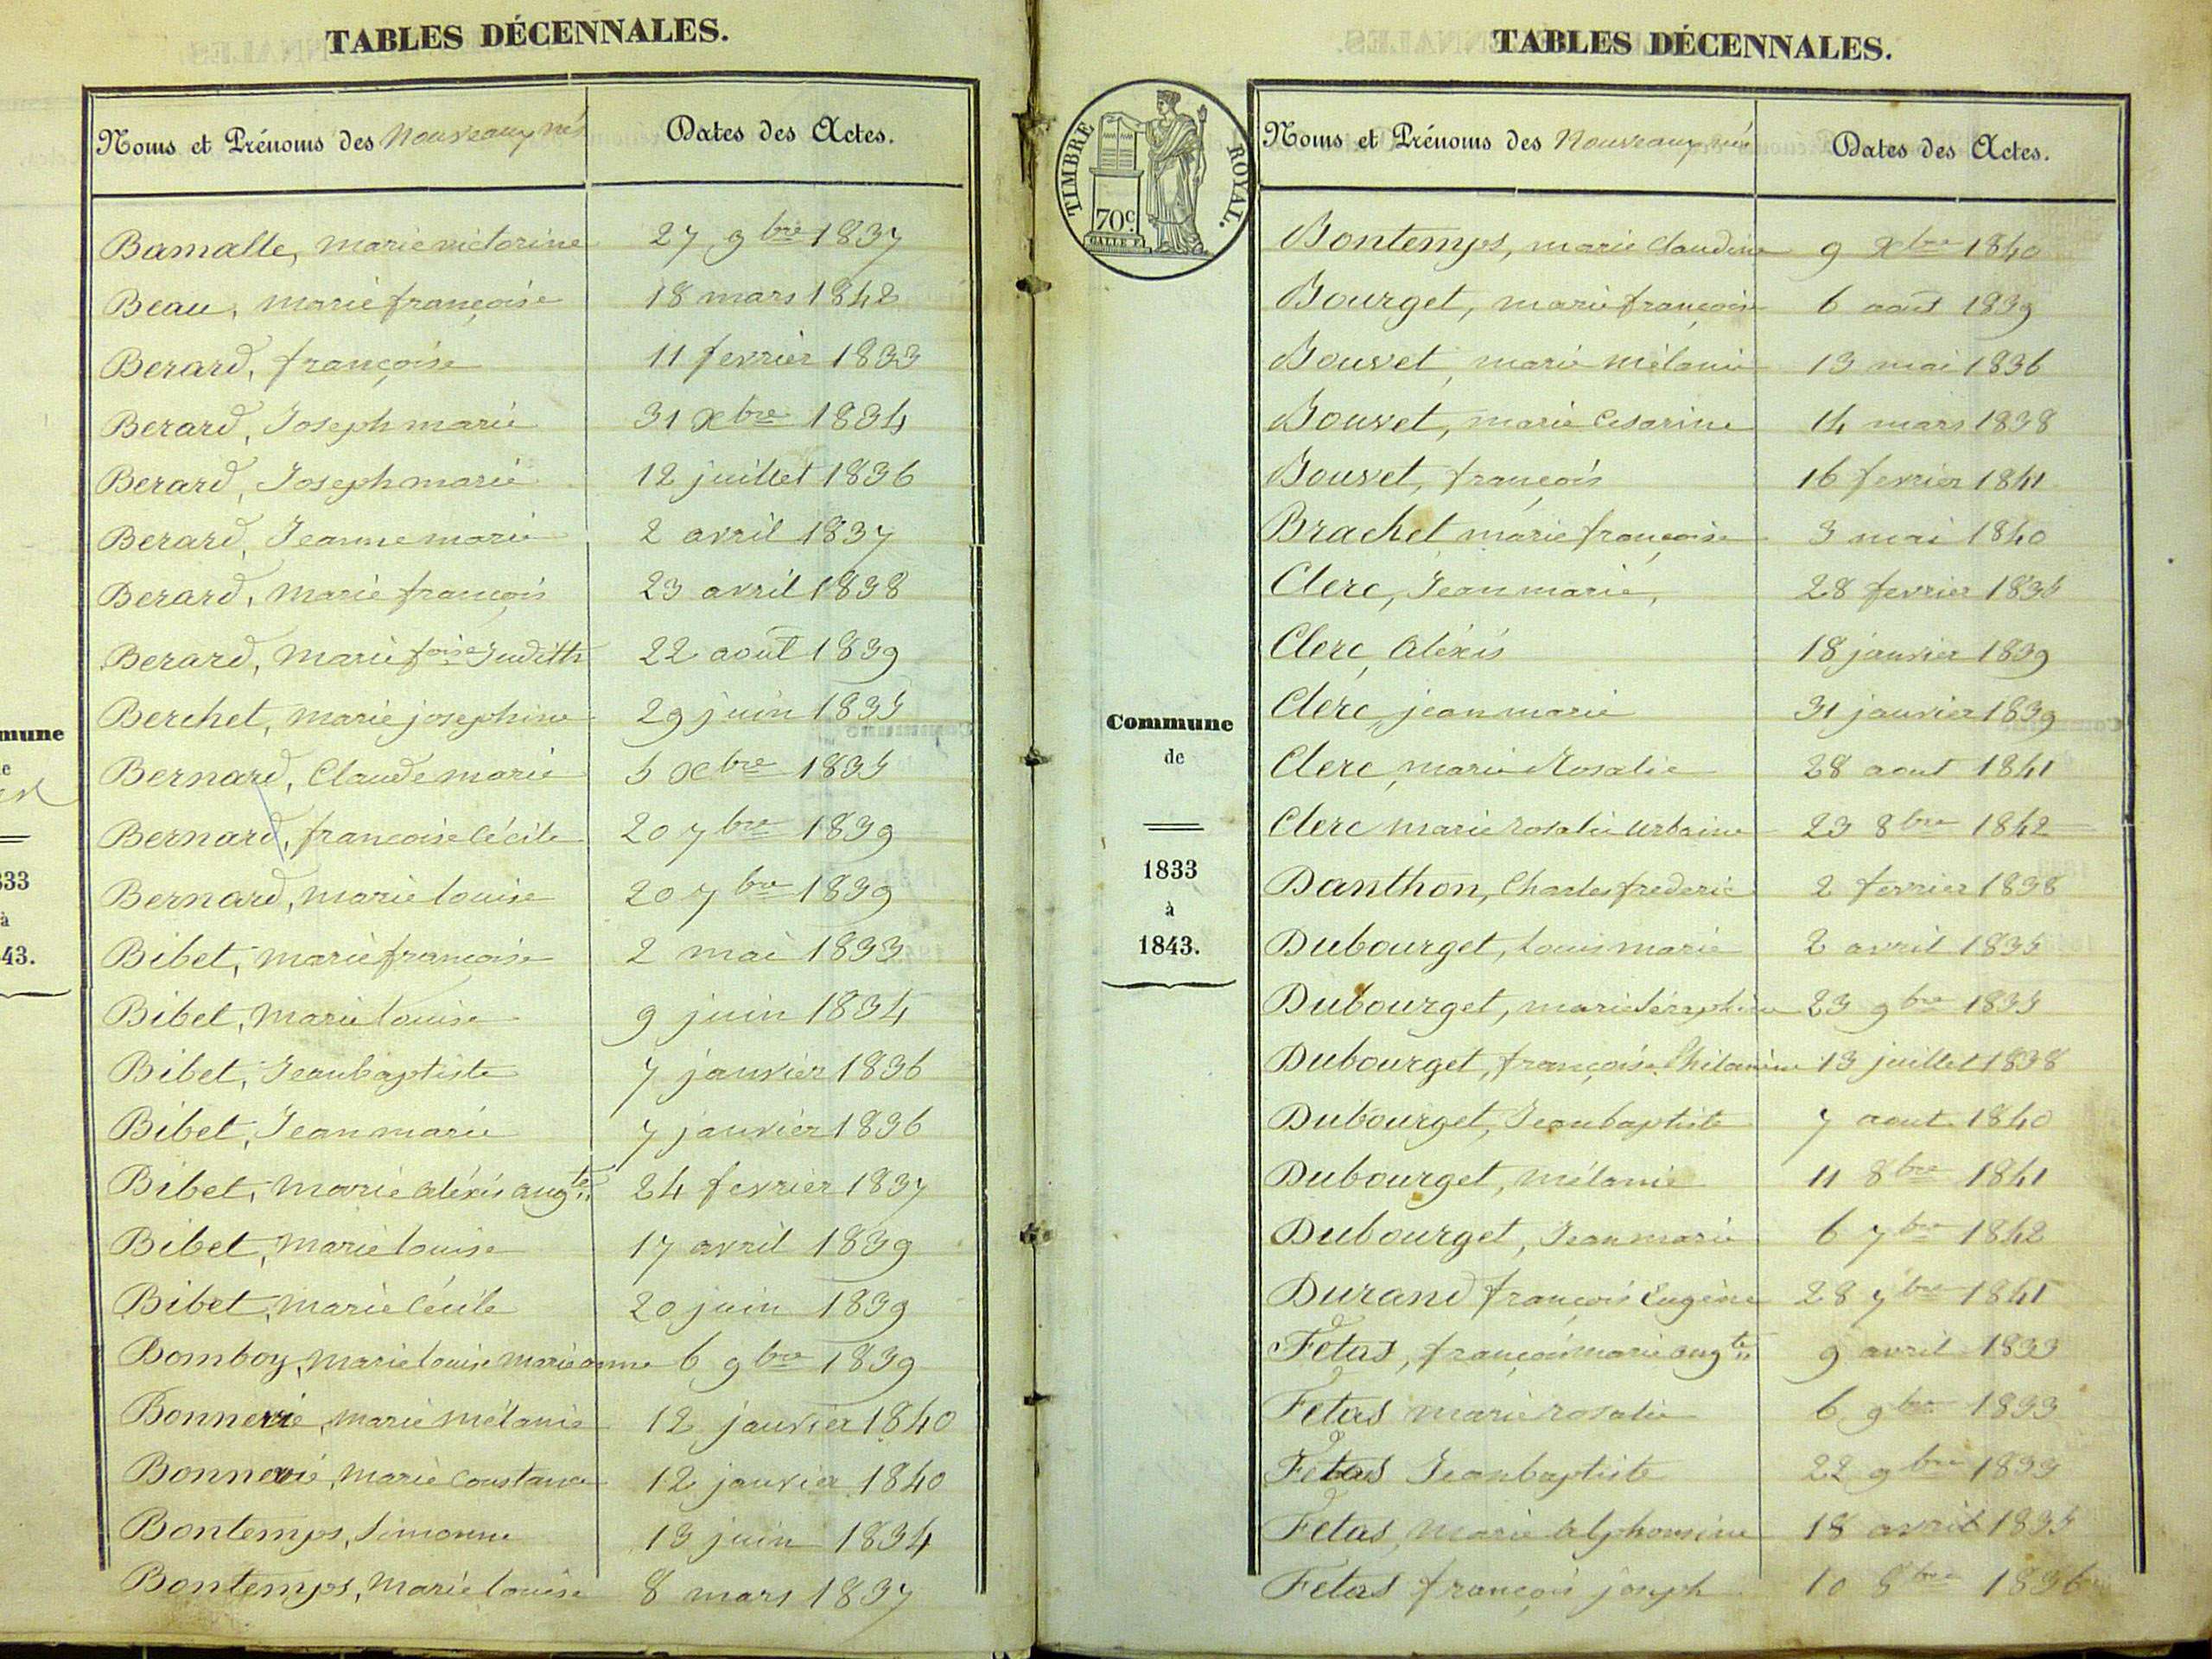 TABLES DÉCENNALES.
Noms et Prénoms des Nouveaux nés
Dates des Actes.
Bamalle, marie victorine 27 9bre 1837
Beau, marie françoise 18 mars 1842
Berard, françoise 11 fevrier 1833
Berard, Joseph marie 31 Xbre 1834
Berard, Joseph marie 12 juillet 1836
Berard, Jeanne marie 2 avril 1837
Berard, marie françois 23 avril 1838
Berard, marie foise Judith 22 août 1839
Berchet, marie josephine 29 juin 1835
Bernard, Claude marie 5 Xbre 1835
Bernard, françoise Cécile 20 7bre 1839
Bernard, marie louise 20 7bre 1839
Bibet, marie françoise 2 mai 1833
Bibet, marie louise 9 juin 1834
Bibet, Jean baptiste 7 janvier 1836
Bibet, Jean marie 7 janvier 1836
Bibet, marie aléxis augte 24 fevrier 1837
Bibet, marie louise 17 avril 1839
Bibet, marie Cécile 20 juin 1839
Bomboy, marie louise marie anne 6 9bre 1839
Bonnevie, marie mélanie 12 janvier 1840
Bonnevie, marie Constance 12 janvier 1840
Bontemps, Simonne 13 juin 1834
Bontemps, marie louise 8 mars 1837
mune
e
333
à
43.
TABLES DÉCENNALES.
TIMBRE ROYAL.
70c.
GALLE F.
Noms et Prénoms des Nouveaux nés
Dates des Actes.
Bontemps, marie Claudine 9 Xbre 1840
Bourget, marie françoise 6 août 1839
Bouvet, marie mélanie 13 mai 1836
Bouvet, marie Cesarine 14 mars 1838
Bouvet, françois 16 fevrier 1841
Brachet marie françoise 3 mai 1840
Clerc, Jean marie, 28 fevrier 1835
Clerc, Aléxis 18 janvier 1839
Clerc, jean marie 31 janvier 1839
Clerc, marie Rosalie 28 aout 1841
Clerc marie rosalie urbaine 23 8bre 1842
Danthon, Charles frederic 2 fevrier 1838
Dubourget, louis marie 2 avril 1835
Dubourget, marie Séraphine 23 9bre 1835
Dubourget, françoise Philomène 13 juillet 1838
Dubourget, Jean baptiste 7 aout 1840
Dubourget, mélanie 11 8bre 1841
Dubourget, Jean marie 6 7bre 1842
Durand françois Eugène 28 7bre 1841
Fetas, françois marie augte 9 avril 1833
Fetas marie rosalie 6 9bre 1833
Fetas Jean baptiste 22 9bre 1833
Fetas, marie alphonsine 18 avril 1835
Fetas françois joseph 10 8bre 1836
Commune
de
1833
à
1843.